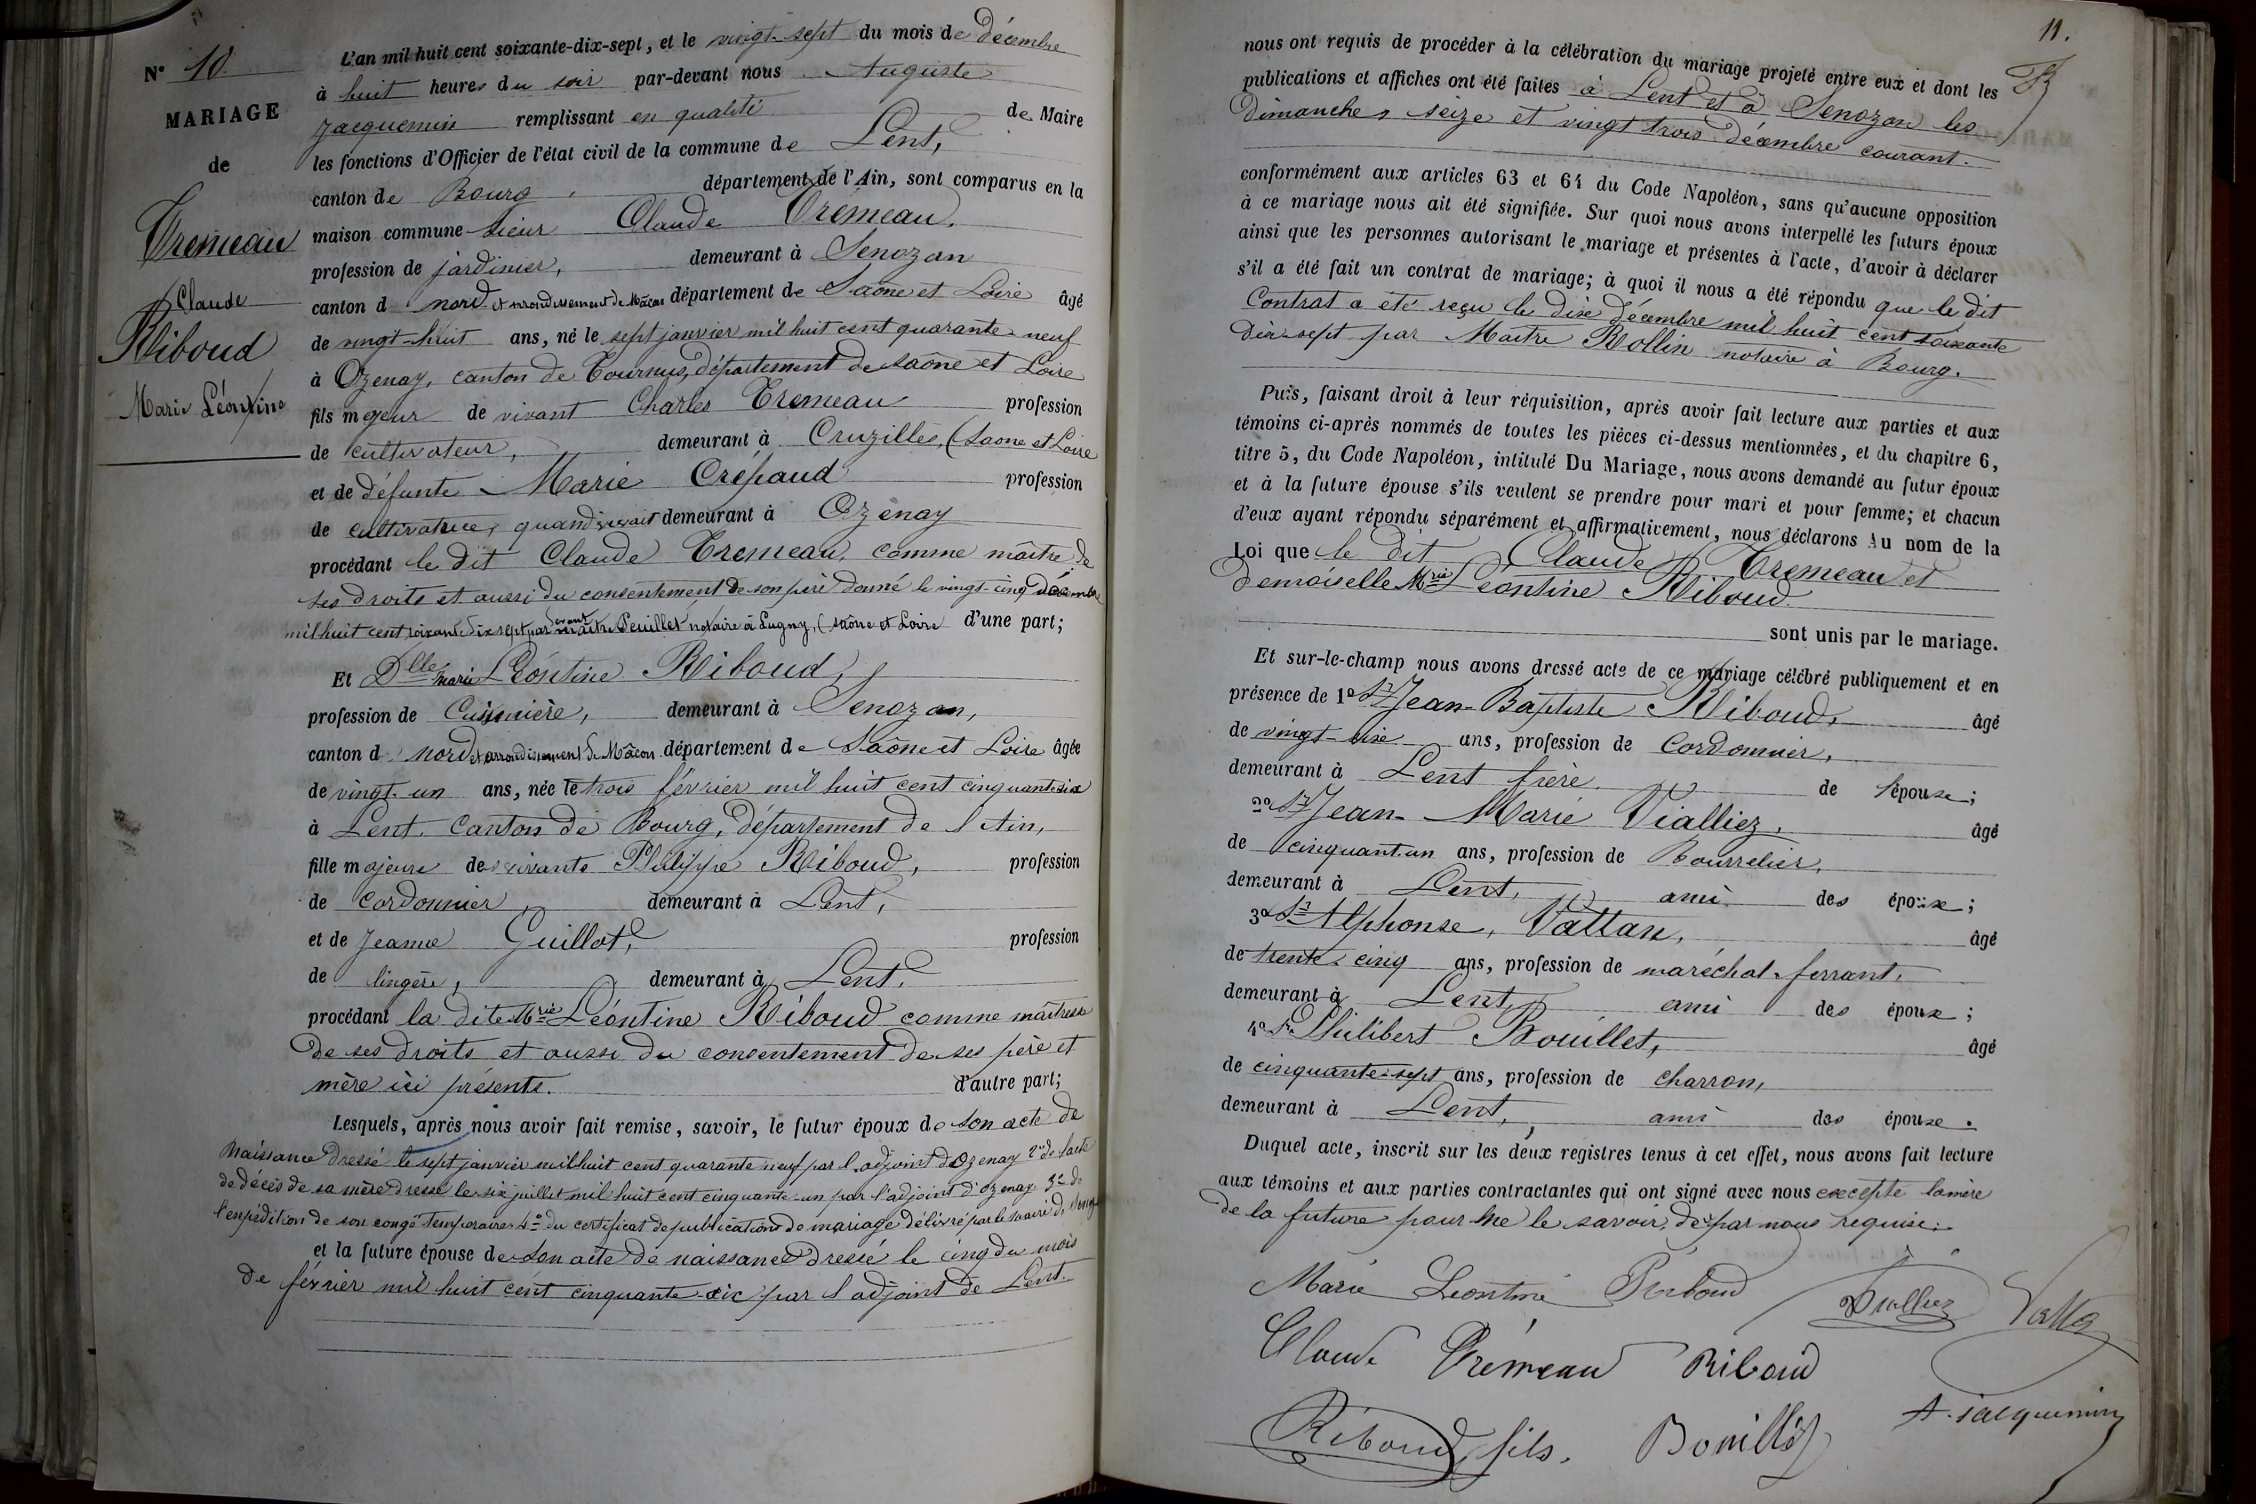 N° 10
MARIAGE
de
Tremeau
Claude
Riboud
Marie Léontine
L'an mil huit cent soixante-dix-sept, et le vingt-sept du mois de décembre
à huit heures du soir par-devant nous Auguste
Jacquemin remplissant en qualité de Maire
les fonctions d'Officier de l'état civil de la commune de Lent,
canton de Bourg, département de l'Ain, sont comparus en la
maison commune sieur Claude Tremeau,
profession de jardinier, demeurant à Senozan
canton d nord et arrondissement de Mâcon département de Saône et Loire âgé
de vingt-huit ans, né le sept janvier mil huit cent quarante-neuf
à Ozenay, canton de Tournus, département de Saône et Loire
fils majeur de vivant Charles Tremeau profession
de cultivateur, demeurant à Cruzilles, (Saone et Loire
et de défunte Marie Crépaud profession
de cultivatrice, quand vivait demeurant à Ozenay
procédant le dit Claude Tremeau comme maître de
ses droits et aussi du consentement de son père donné le vingt-cinq décembre
mil huit cent soixante dix sept par devant maître Peuillet notaire à Lugny, (Saône et Loire d'une part;
Et Dlle Marie Léontine Riboud,
profession de Cuisinière, demeurant à Senozan,
canton d nord et arrondissement de Mâcon département de Saône et Loire âgée
de vingt-un ans, née le trois février mil huit cent cinquante six
à Lent, Canton de Bourg, département de l'Ain,
fille majeure de vivants Philippe Riboud, profession
de cordonnier, demeurant à Lent,
et de Jeanne Guillot, profession
de lingère, demeurant à Lent,
procédant la dite Mrie Léontine Riboud comme maîtresse
de ses droits et aussi du consentement de ses père et
mère ici présents. d'autre part;
Lesquels, après nous avoir fait remise, savoir, le futur époux de son acte de
Naissance dressé le sept janvier mil huit cent quarante neuf par l'adjoint d'Ozenay 2° de l'acte
de décès de sa mère dressé le six juillet mil huit cent cinquante-un par l'adjoint d'Ozenay 3° de
l'expédition de son congé temporaire 4° du certificat de publications de mariage délivré par le maire de
et la future épouse de son acte de naissance dressé le cinq du mois
de février mil huit cent cinquante-six par l'adjoint de Lent.
11.
nous ont requis de procéder à la célébration du mariage projeté entre eux et dont les
publications et affiches ont été faites à Lent et à Senozan les
dimanches seize et vingt trois décembre courant.
conformément aux articles 63 et 64 du Code Napoléon, sans qu'aucune opposition
à ce mariage nous ait été signifiée. Sur quoi nous avons interpellé les futurs époux
ainsi que les personnes autorisant le mariage et présentes à l'acte, d'avoir à déclarer
s'il a été fait un contrat de mariage; à quoi il nous a été répondu que le dit
Contrat a été reçu le dix décembre mil huit cent soixante
dix-sept par Maître Rollin notaire à Bourg.
Puis, faisant droit à leur réquisition, après avoir fait lecture aux parties et aux
témoins ci-après nommés de toutes les pièces ci-dessus mentionnées, et du chapitre 6,
titre 5, du Code Napoléon, intitulé Du Mariage, nous avons demandé au futur époux
et à la future épouse s'ils veulent se prendre pour mari et pour femme; et chacun
d'eux ayant répondu séparément et affirmativement, nous déclarons Au nom de la
Loi que le dit Claude Tremeau et
Demoiselle Mrie Léontine Riboud
sont unis par le mariage.
Et sur-le-champ nous avons dressé acte de ce mariage célébré publiquement et en
présence de 1° Sr Jean-Baptiste Riboud, âgé
de vingt-six ans, profession de Cordonnier,
demeurant à Lent frère de l'épouse;
2° Sr Jean-Marie Vialliez, âgé
de cinquant-un ans, profession de Bourrelier,
demeurant à Lent, ami des époux;
3° Sr Alphonse, Vattan, âgé
de trente-cinq ans, profession de maréchal-ferrant,
demeurant à Lent, ami des époux;
4° Sr Philibert Bouillet, âgé
de cinquante-sept ans, profession de charron,
demeurant à Lent, ami des époux.
Duquel acte, inscrit sur les deux registres tenus à cet effet, nous avons fait lecture
aux témoins et aux parties contractantes qui ont signé avec nous excepté la mère
de la future pour ne le savoir, de par nous requise.
Marie Leontine Riboud Vialliez Vatta
Claude Trémeau Riboud
A. Jacquemin
Riboud fils. Bouillet